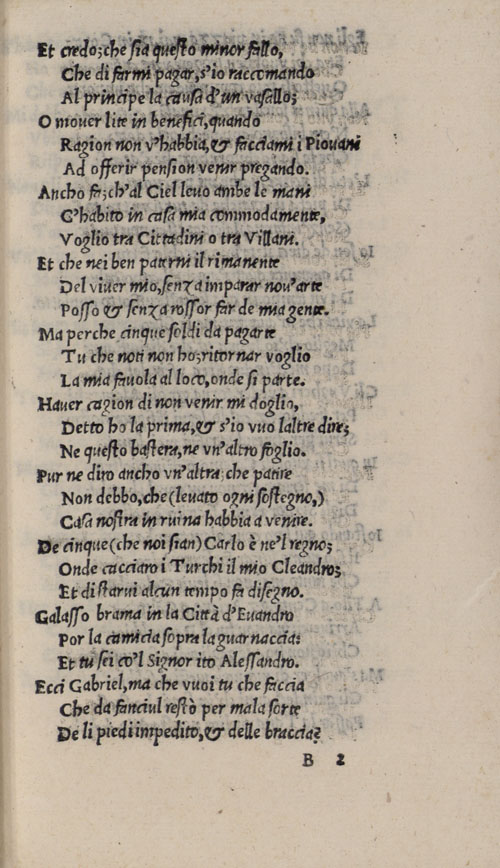 Et credo; che sia questo minor fallo,
Che di farmi pagar, s'io raccomando
Al principe la causa d'un vasallo;
O mouer lite in benefici, quando
Ragion non v'habbia, & facciami i Piouani
Ad offerir pension venir pregando.
Ancho fa; ch'al Ciel leuo ambe le mani
C'habito in casa mia commodamente,
Voglio tra Cittadini o tra Villani.
Et che nei ben paterni il rimanente
Del viuer mio, senza imparar nou'arte
Posso & senza rossor far de mia gente.
Ma perche cinque soldi da pagarte
Tu che noti non ho; ritornar voglio
La mia fauola al loco, onde si parte.
Hauer cagion di non venir mi doglio,
Detto ho la prima, & s'io vuo laltre dire;
Ne questo bastera, ne vn'altro foglio.
Pur ne diro ancho vn'altra; che patire
Non debbo, che (leuato ogni sostegno,)
Casa nostra in ruina habbia a venire.
De cinque (che noi sian) Carlo è ne'l regno;
Onde cacciaro i Turchi il mio Cleandro;
Et di starui alcun tempo fa disegno.
Galasso brama in la Città d'Euandro
Por la camicia sopra la guarnaccia:
Et tu sei co'l Signor ito Alessandro.
Ecci Gabriel, ma che vuoi tu che faccia
Che da fanciul restò per mala sorte
De li piedi impedito, & delle braccia?
B 2